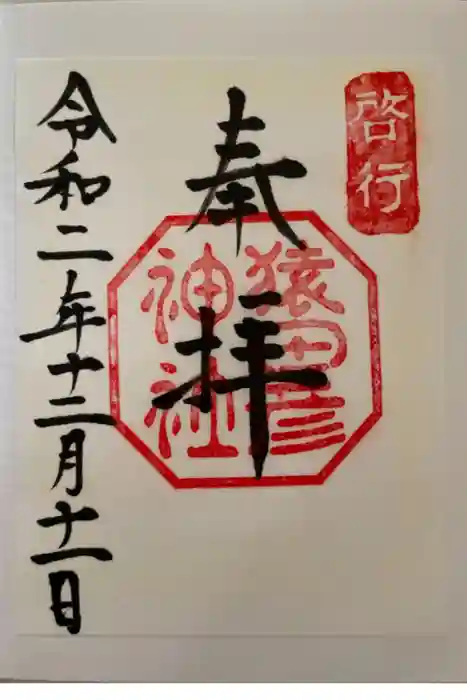 啓行
奉拝
猿田彦
神社
令和二年十二月十一日